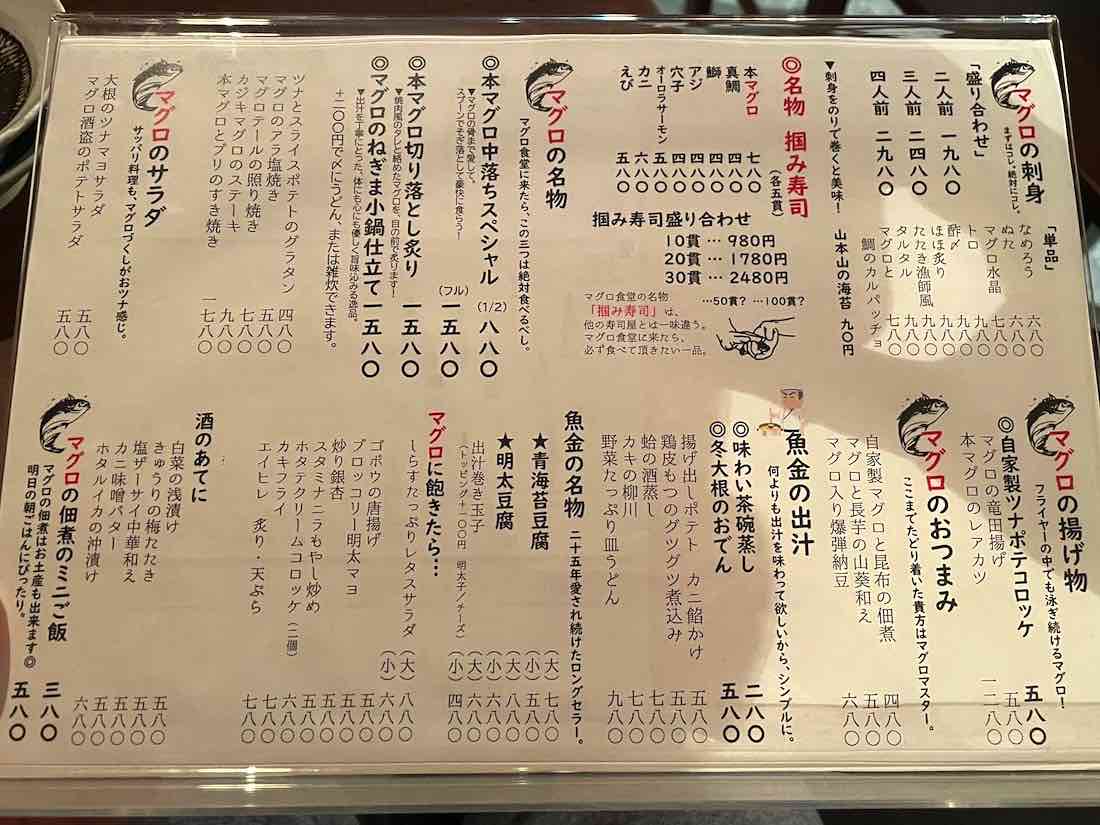 マグロの刺身
まずはコレ。絶対にコレ。
「盛り合わせ」
二人前 一九八〇
三人前
四人前 二九八〇
▼刺身をのりで巻くと美味！ 山本山の海苔 九〇円
「単品」
なめろう 六八〇
ぬた 六八〇
マグロ水晶
トロ
酢〆
ほほ炙り
たたき漁師風
タルタル
マグロと鯛のカルパッチョ
◎名物 掴み寿司
(各五貫)
本マグロ 七八〇
真鯛 四八〇
鰤 四八〇
アジ 四八〇
穴子 四八〇
オーロラサーモン 六八〇
カニ 六八〇
えび 五八〇
掴み寿司盛り合わせ
10貫 … 980円
20貫 … 1780円
30貫 … 2480円
…50貫? …100貫?
マグロ食堂の名物
「掴み寿司」は、
他の寿司屋とは一味違う。
マグロ食堂に来たら、
必ず食べて頂きたい一品。
マグロの名物
マグロ食堂に来たら、この三つは絶対食べるべし。
◎本マグロ中落ちスペシャル (1/2) 八八〇
(フル) 一五八〇
▼マグロの骨まで愛して。
スプーンでそぎ落として豪快に食らう！
◎本マグロ切り落とし炙り 一五八〇
▼焼肉風のタレと絡めたマグロを、目の前で炙ります！
◎マグロのねぎま小鍋仕立て 一五八〇
▼出汁を丁寧にとった、体にも心にも優しく旨味沁みる逸品。
＋二〇〇円で〆にうどん、または雑炊できます。
ツナとスライスポテトのグラタン 四八〇
マグロのアラ塩焼き 五八〇
マグロテールの照り焼き 七八〇
カジキマグロのステーキ 九八〇
本マグロとブリのすき焼き 一七八〇
マグロのサラダ
サッパリ料理も、マグロづくしがおツナ感じ。
大根のツナマヨサラダ 五八〇
マグロ酒盗のポテトサラダ 五八〇
マグロの揚げ物
フライヤーの中でも泳ぎ続けるマグロ！
◎自家製ツナポテコロッケ 五八〇
マグロの竜田揚げ 五八〇
本マグロのレアカツ 一二八〇
マグロのおつまみ
ここまでたどり着いた貴方はマグロマスター。
自家製マグロと昆布の佃煮 四八〇
マグロと長芋の山葵和え 五八〇
マグロ入り爆弾納豆 六八〇
魚金の出汁
何よりも出汁を味わって欲しいから、シンプルに。
◎味わい茶碗蒸し 二八〇
◎冬大根のおでん 五八〇
揚げ出しポテト カニ餡かけ 五八〇
鶏皮もつのグツグツ煮込み 五八〇
蛤の酒蒸し 七八〇
カキの柳川 七八〇
野菜たっぷり皿うどん 九八〇
魚金の名物
二十五年愛され続けたロングセラー。
★青海苔豆腐 (大) 七八〇
(小) 五八〇
★明太豆腐 (大) 八八〇
(小) 六八〇
出汁巻き玉子 (小) 四八〇
(トッピング＋一〇〇円 明太子／チーズ)
マグロに飽きたら…
しらすたっぷりレタスサラダ (大) 八八〇
(小) 六八〇
ゴボウの唐揚げ 五八〇
ブロッコリー明太マヨ 五八〇
炒り銀杏 五八〇
スタミナニラもやし炒め 五八〇
ホタテクリームコロッケ(二個) 六八〇
カキフライ 七八〇
エイヒレ 炙り・天ぷら 七八〇
酒のあてに
白菜の浅漬け 五八〇
きゅうりの梅たたき 五八〇
塩ザーサイ中華和え 五八〇
カニ味噌バター 五八〇
ホタルイカの沖漬け 六八〇
マグロの佃煮のミニご飯 三八〇
マグロの佃煮はお土産も出来ます◎ 五八〇
明日の朝ごはんにぴったり。